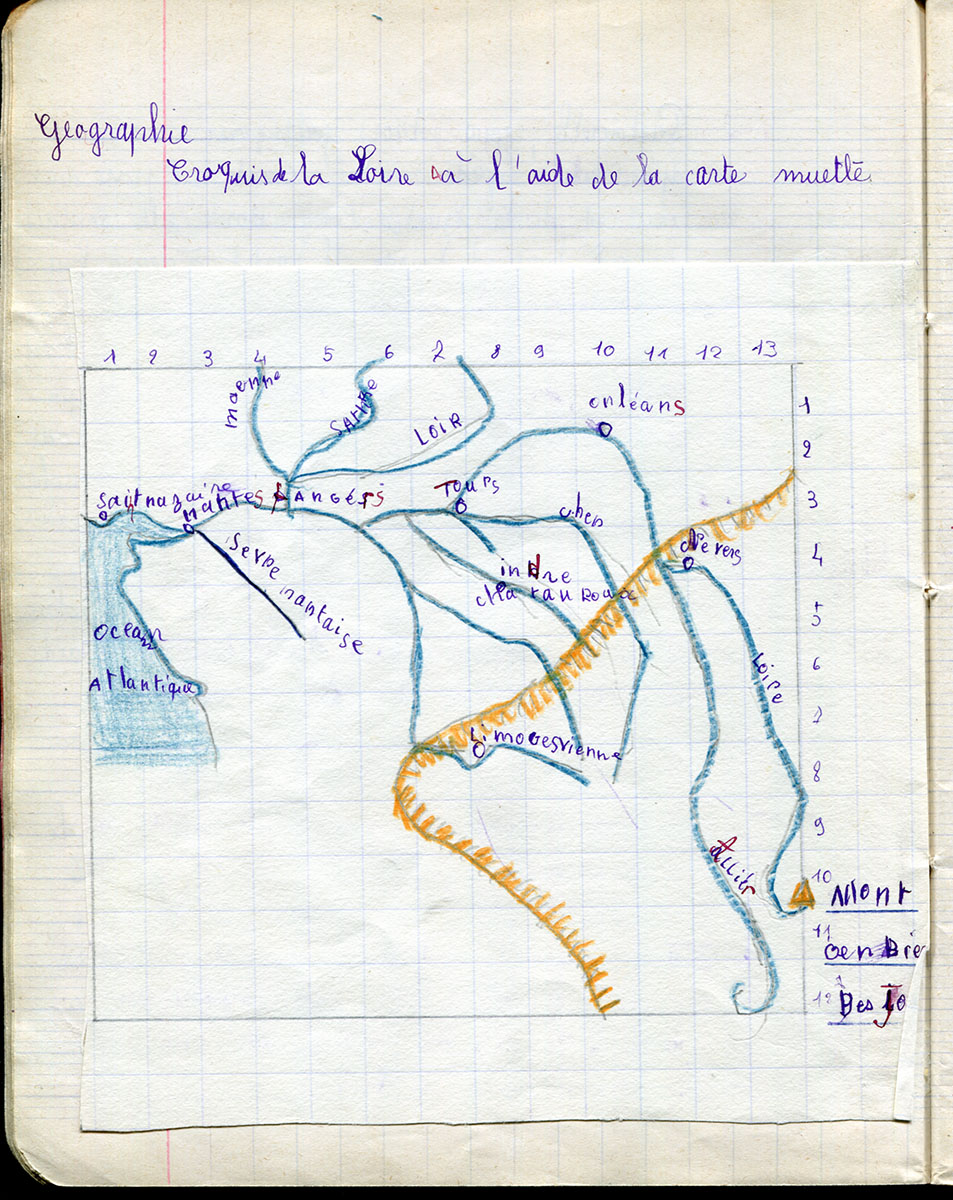 Geographie
Croquis de la Loire à l'aide de la carte muette
1 2 3 4 5 6 7 8 9 10 11 12 13
maenne
SARTRE
LOIR
Orléans
1
2
3
4
5
6
7
8
9
10
11
12
Saitnazaire
Nantes
Angers
Tours
cher
Nevers
Serpe nantaise
indre
Ocean
Atlantique
Loire
Limogesvienne
Allier
Mont
Gerbie
Des Jo